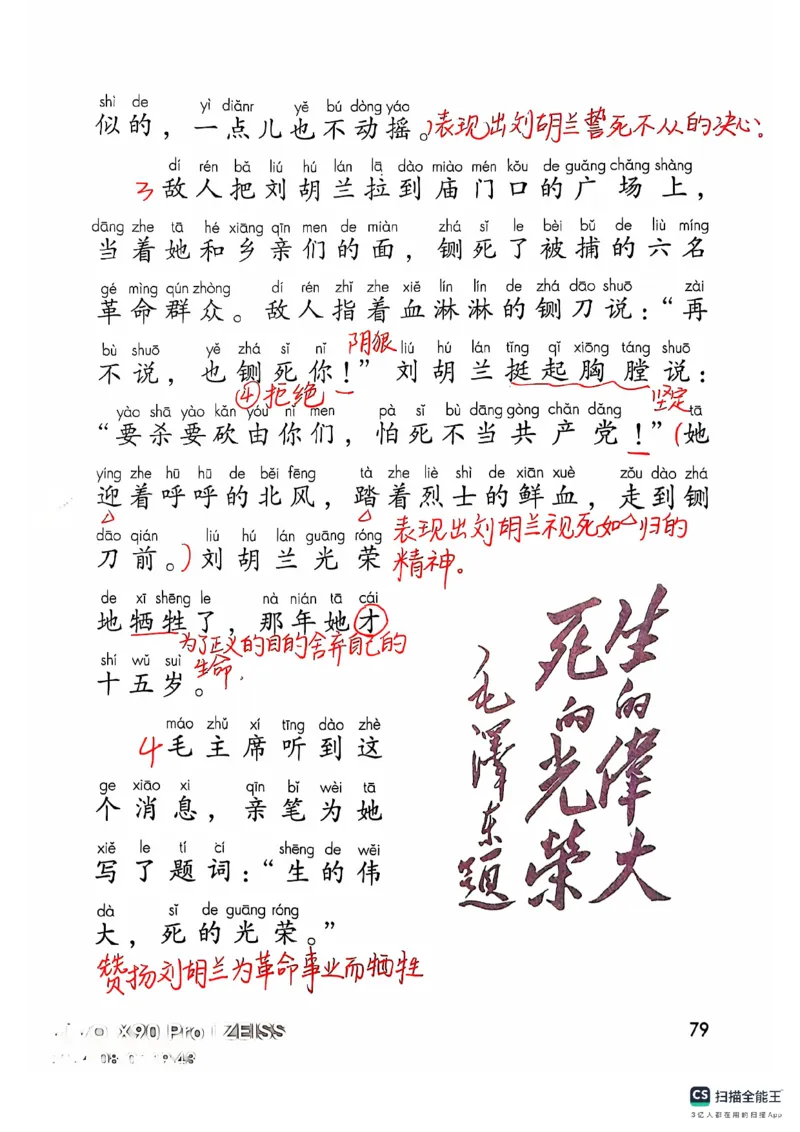 shì de yì diǎnr yě bú dòng yáo
似的，一点儿也不动摇。）表现出刘胡兰誓死不从的决心。
dí rén bǎ liú hú lán lā dào miào mén kǒu de guǎng chǎng shàng
3 敌人把刘胡兰拉到庙门口的广场上，
dāng zhe tā hé xiāng qīn men de miàn zhá sǐ le bèi bǔ de liù míng
当着她和乡亲们的面，铡死了被捕的六名
gé mìng qún zhòng dí rén zhǐ zhe xiě lín lín de zhá dāo shuō zài
革命群众。敌人指着血淋淋的铡刀说：“再
bù shuō yě zhá sǐ nǐ 阴狠 liú hú lán tǐng qǐ xiōng táng shuō
不说，也铡死你！”刘胡兰挺起胸膛说：
④拒绝 坚定
yào shā yào kǎn yóu nǐ men pà sǐ bù dāng gòng chǎn dǎng tā
“要杀要砍由你们，怕死不当共产党！”（她
yíng zhe hū hū de běi fēng tà zhe liè shì de xiān xuè zǒu dào zhá
迎着呼呼的北风，踏着烈士的鲜血，走到铡
dāo qián liú hú lán guāng róng
刀前。）刘胡兰光荣
表现出刘胡兰视死如归的
精神。
de xī shēng le nà nián tā cái
地牺牲了，那年她才
为了正义的目的舍弃自己的
生命
shí wǔ suì
十五岁。
máo zhǔ xí tīng dào zhè
4 毛主席听到这
ge xiāo xi qīn bǐ wèi tā
个消息，亲笔为她
xiě le tí cí shēng de wěi
写了题词：“生的伟
dà sǐ de guāng róng
大，死的光荣。”
赞扬刘胡兰为革命事业而牺牲
生的偉大
死的光榮
毛澤东題
X90 Pro | ZEISS
79
CS 扫描全能王
3亿人都在用的扫描App